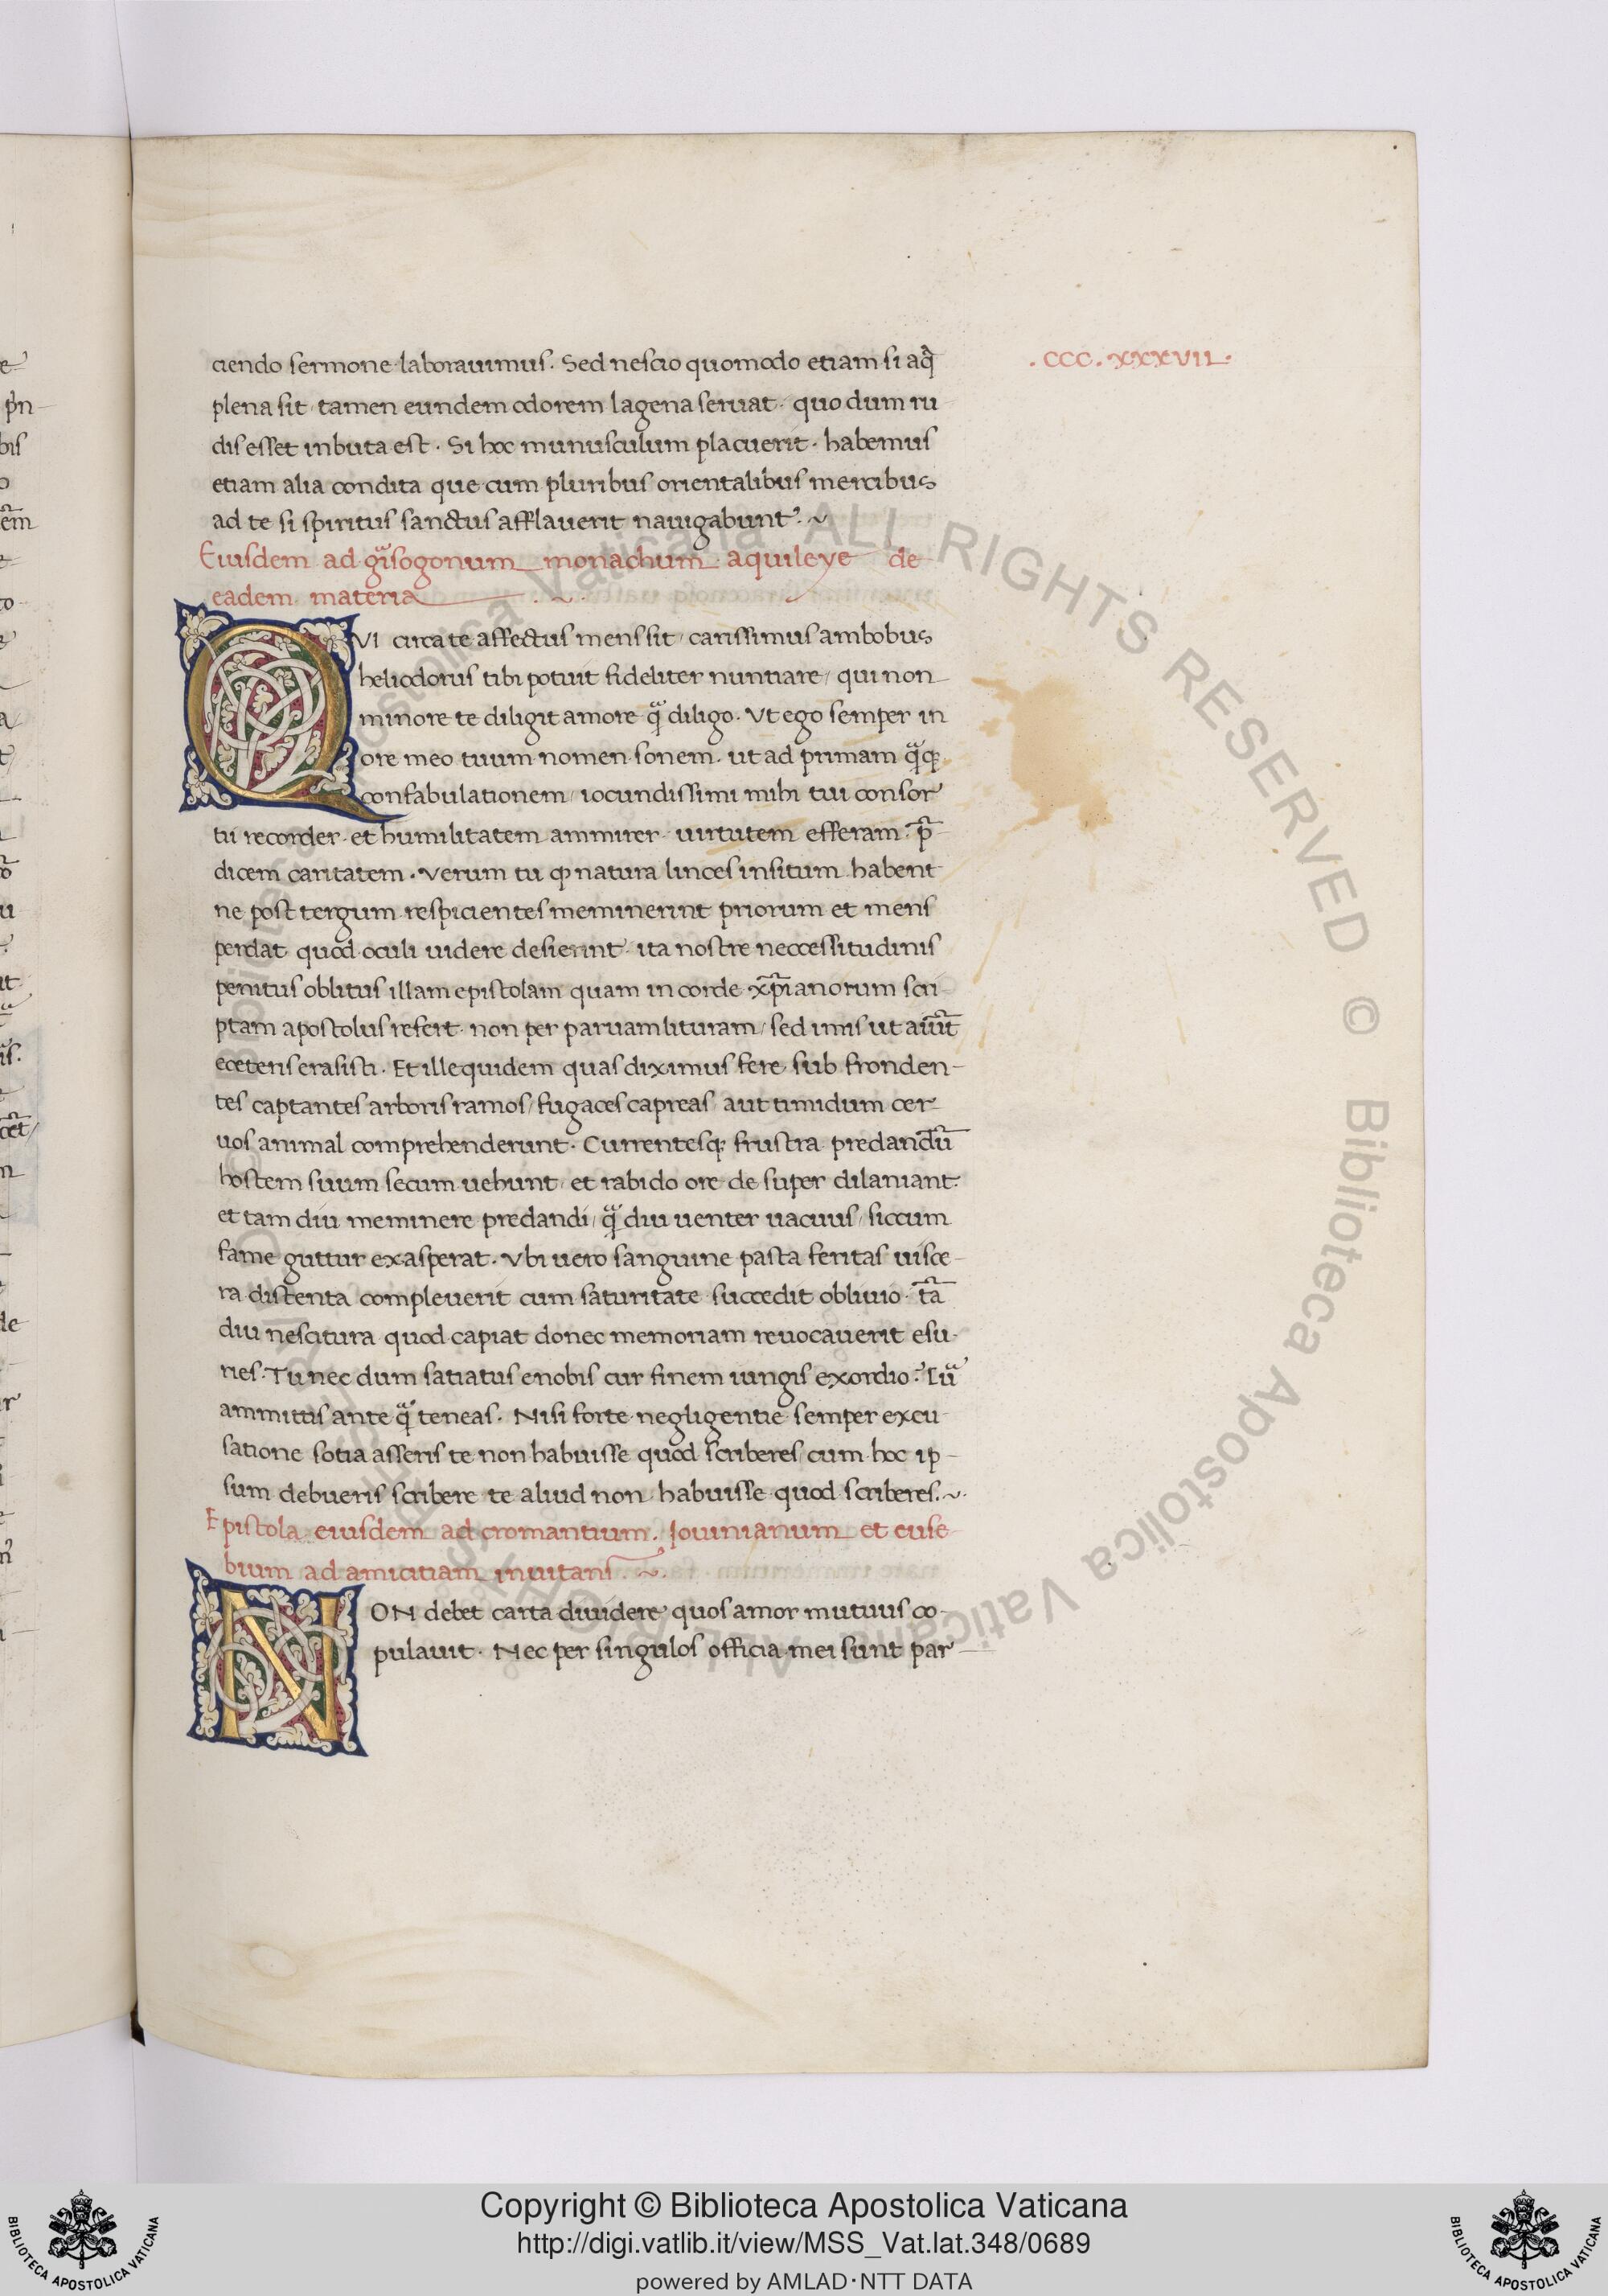 .CCC.XXXVII.
ciendo sermone laborauimus. Sed nescio quomodo etiam si aq̃
plena sit, tamen eundem odorem lagena seruat. quo dum ru
dis esset inbuta est. Si hoc munusculum placuerit. habemus
etiam alia condita que cum pluribus orientalibus mercibus
ad te si spiritus sanctus afflauerit nauigabunt. ~
Eiusdem ad gͣisogonum monachum aquileye de
eadem materia
QVI circa te affectus mens sit, carissimus ambobus
heliodorus tibi potuit fideliter nuntiare, qui non
minore te diligit amore q̃ diligo. Vt ego semper in
ore meo tuum nomen sonem. ut ad primam q̃q;
confabulationem, iocundissimi mihi tui consor
tii recorder. et humilitatem ammirer. uirtutem efferam. p̃
dicem caritatem. Verum tu ꝙ natura linces insitum habent
ne post tergum respicientes meminerint priorum et mens
perdat quod oculi uidere desierint. ita nostre neccessitudinis
penitus oblitus illam epistolam quam in corde xp̃ianorum scri
ptam apostolus refert. non per paruam lituram, sed imis ut aiũt
ceteris erasisti. Et ille quidem quas diximus fere, sub fronden-
tes captantes arboris ramos, fugaces capreas, aut timidum cer
uos animal comprehenderunt. Currentesq; frustra predandũ
hostem suum secum uehunt, et rabido ore de super dilaniant.
et tam diu meminere predandi, q̃ diu uenter uacuus, siccum
fame guttur exasperat. Vbi uero sanguine pasta feritas uisce-
ra distenta compleuerit cum saturitate succedit obliuio. tã
diu nescitura quod capiat donec memoriam reuocauerit esu.
ries. Tu nec dum satiatus e nobis cur finem iungis exordio? Cũ
ammittis ante q̃ teneas. Nisi forte negligentie semper excu
satione sotia asseris te non habuisse quod scriberes, cum hoc ip-
sum debueris scribere te aliud non habuisse quod scriberes. ~.
Epistola eiusdem ad cromantium. Iouinianum et euse
bium ad amicitiam inuitans. ~.
NON debet carta diuidere quos amor mutuus co-
pulauit. Nec per singulos officia mei sunt par
Copyright © Biblioteca Apostolica Vaticana
http://digi.vatlib.it/view/MSS_Vat.lat.348/0689
powered by AMLAD·NTT DATA
BIBLIOTECA APOSTOLICA VATICANA
BIBLIOTECA APOSTOLICA VATICANA
Biblioteca Apostolica Vaticana ALL RIGHTS RESERVED © Biblioteca Apostolica Vaticana ALL RIGHTS RESERVED ©